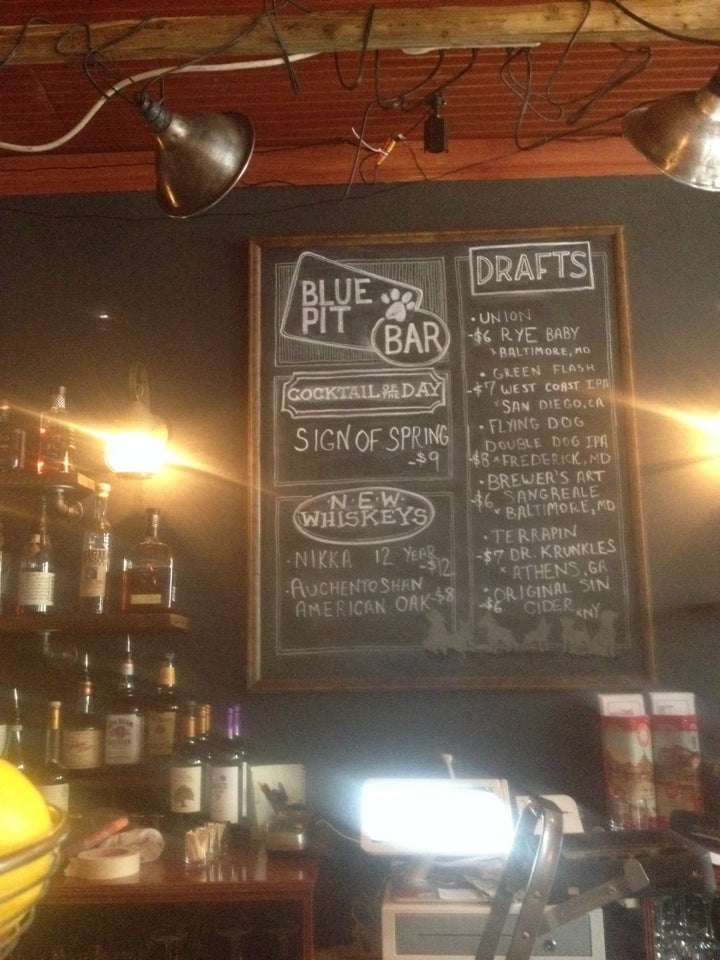 BLUE
PIT
BAR
COCKTAIL OF THE DAY
SIGN OF SPRING
-$9
NEW
WHISKEYS
·NIKKA 12 YEAR
-$12
·AUCHENTOSHAN
AMERICAN OAK-$8
DRAFTS
·UNION
-$6 RYE BABY
*BALTIMORE, MD
·GREEN FLASH
-$7 WEST COAST IPA
*SAN DIEGO, CA
·FLYING DOG
DOUBLE DOG IPA
-$8 *FREDERICK, MD
·BREWER'S ART
-$6 SANGREALE
*BALTIMORE, MD
·TERRAPIN
-$7 DR. KRUNKLES
*ATHENS, GA
·ORIGINAL SIN
-$6 CIDER *NY